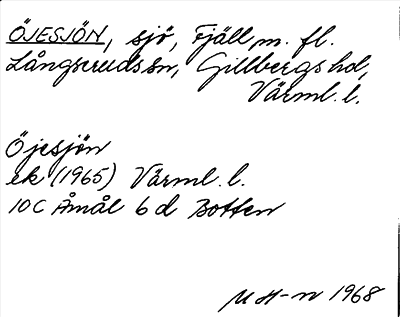 ÖJESJÖN, sjö, Fjäll m. fl.
Långseruds sn, Gillbergs hd,
Värml. l.
Öjesjön
ek (1965) Värml. l.
10 C Åmål 6 d Botten
M H-n 1968